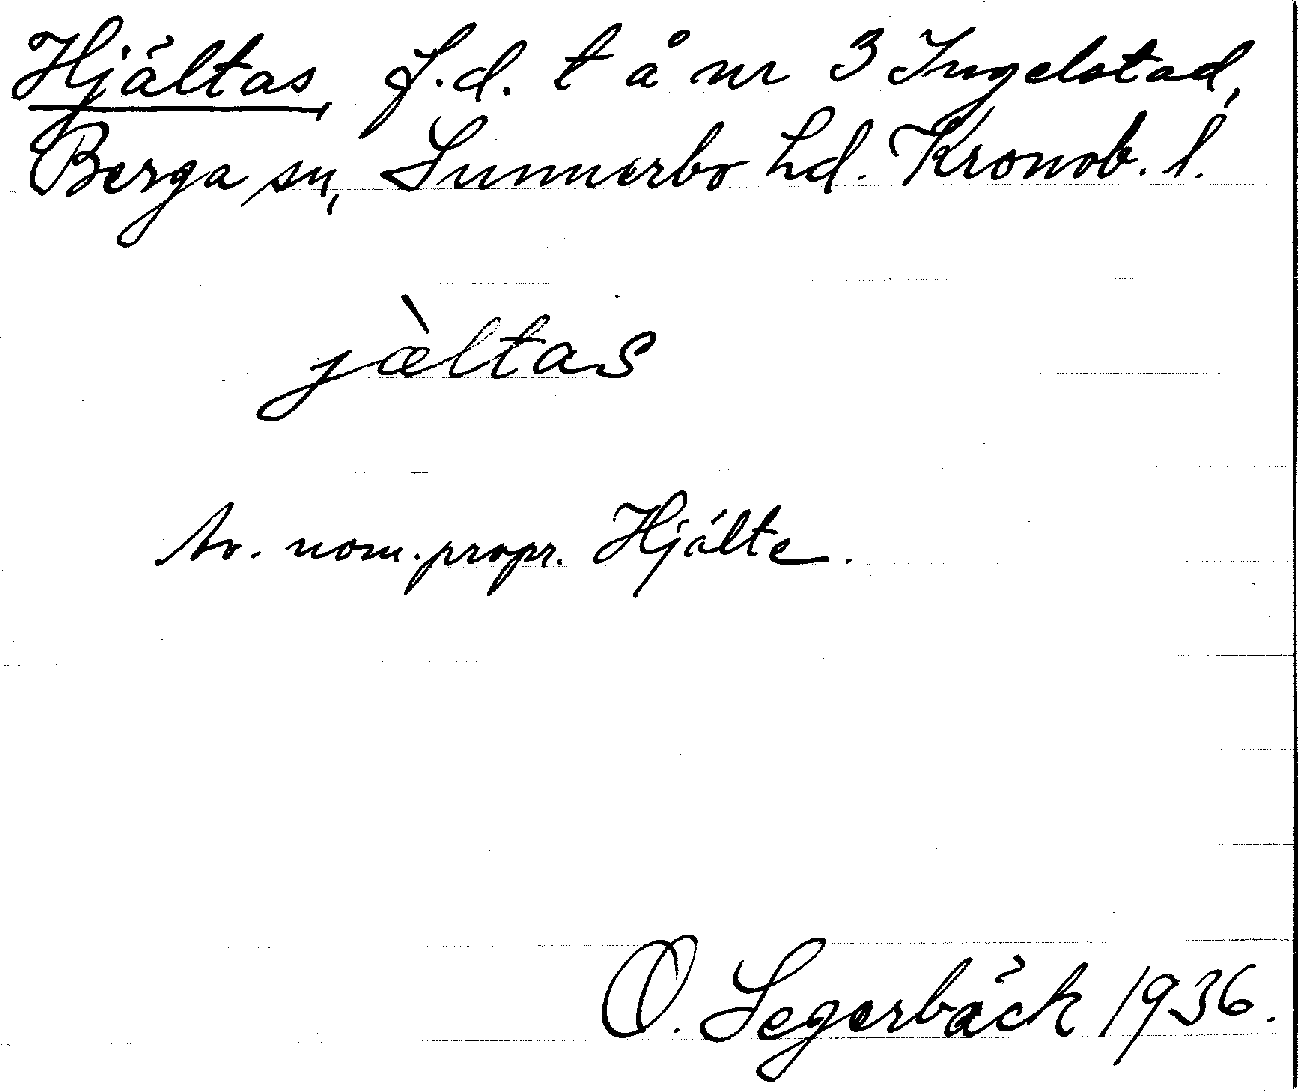 Hjältas f.d. t å nr 3 Ingelstad,
Berga sn, Sunnerbo hd. Kronob. l.
jæ̀ltas
Av. nom. propr. Hjälte.
O. Segerbäck 1936.